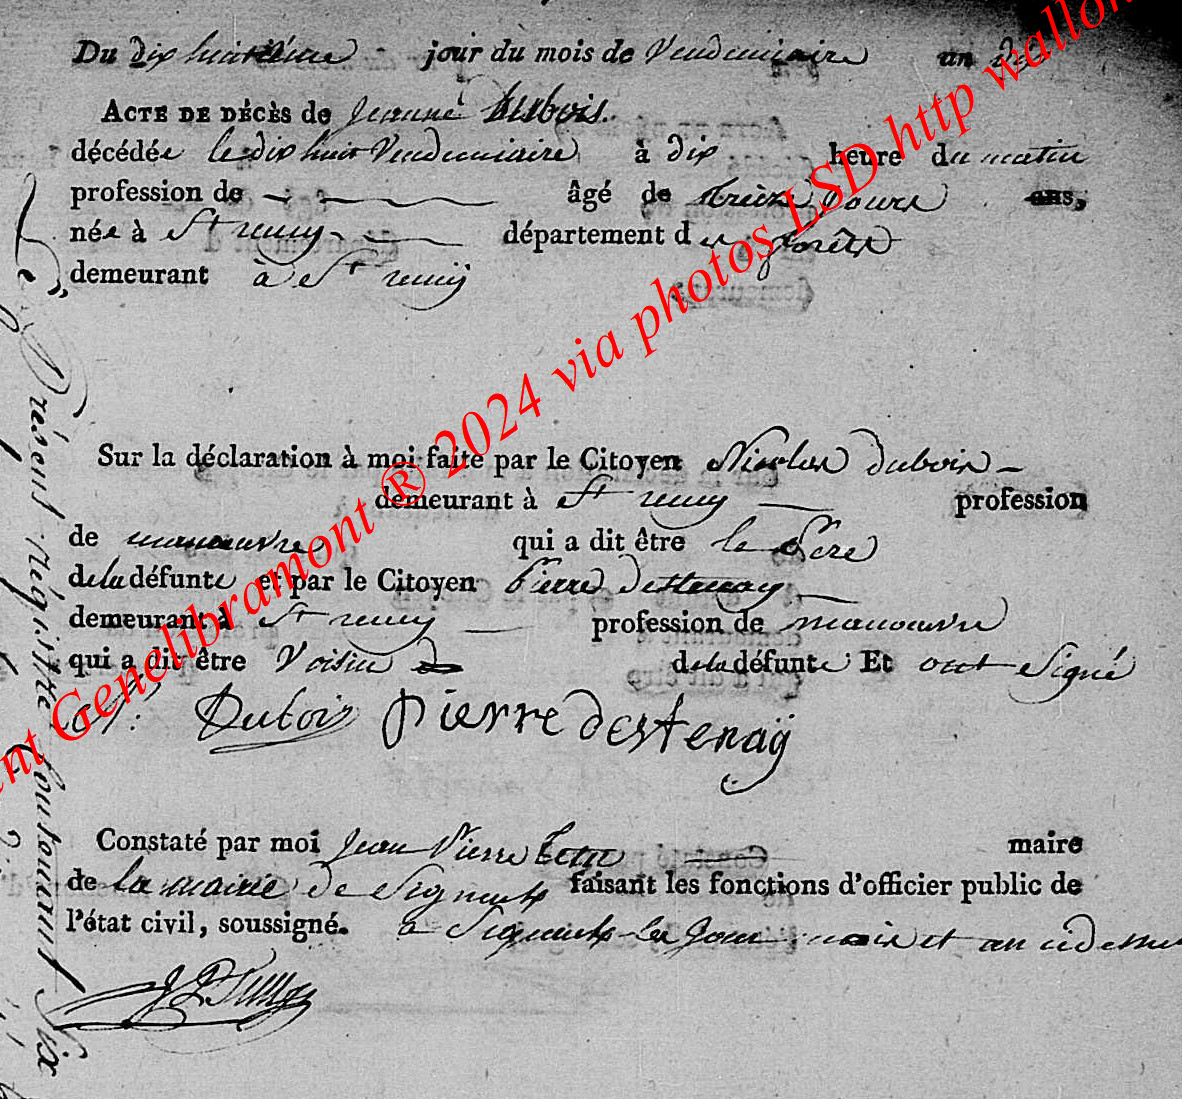 Du dix huitième jour du mois de Vendemiaire an dix
ACTE DE DÉCÈS de Jeanne Dubois.
décédée le dix huit Vendemiaire à dix heure du matin
profession de âgé de treize Jours ans,
née à St remy département des forêts
demeurant à St remij
Sur la déclaration à moi faite par le Citoyen Nicolas dubois
demeurant à St remy profession
de manoeuvre qui a dit être le Père
de la défunte et par le Citoyen Pierre destenay
demeurant à St remy profession de manoeuvre
qui a dit être Voisin de la défunte Et ont Signé
Dubois Pierre destenaÿ
Constaté par moi Jean Pierre maire
de la mairie de Signeulx faisant les fonctions d'officier public de
l'état civil, soussigné. a Signeulx les Jour mois et an cidessus
Le Présent Régistre Contenant Six
Genelibramont ® 2024 via photos LSD http wallon